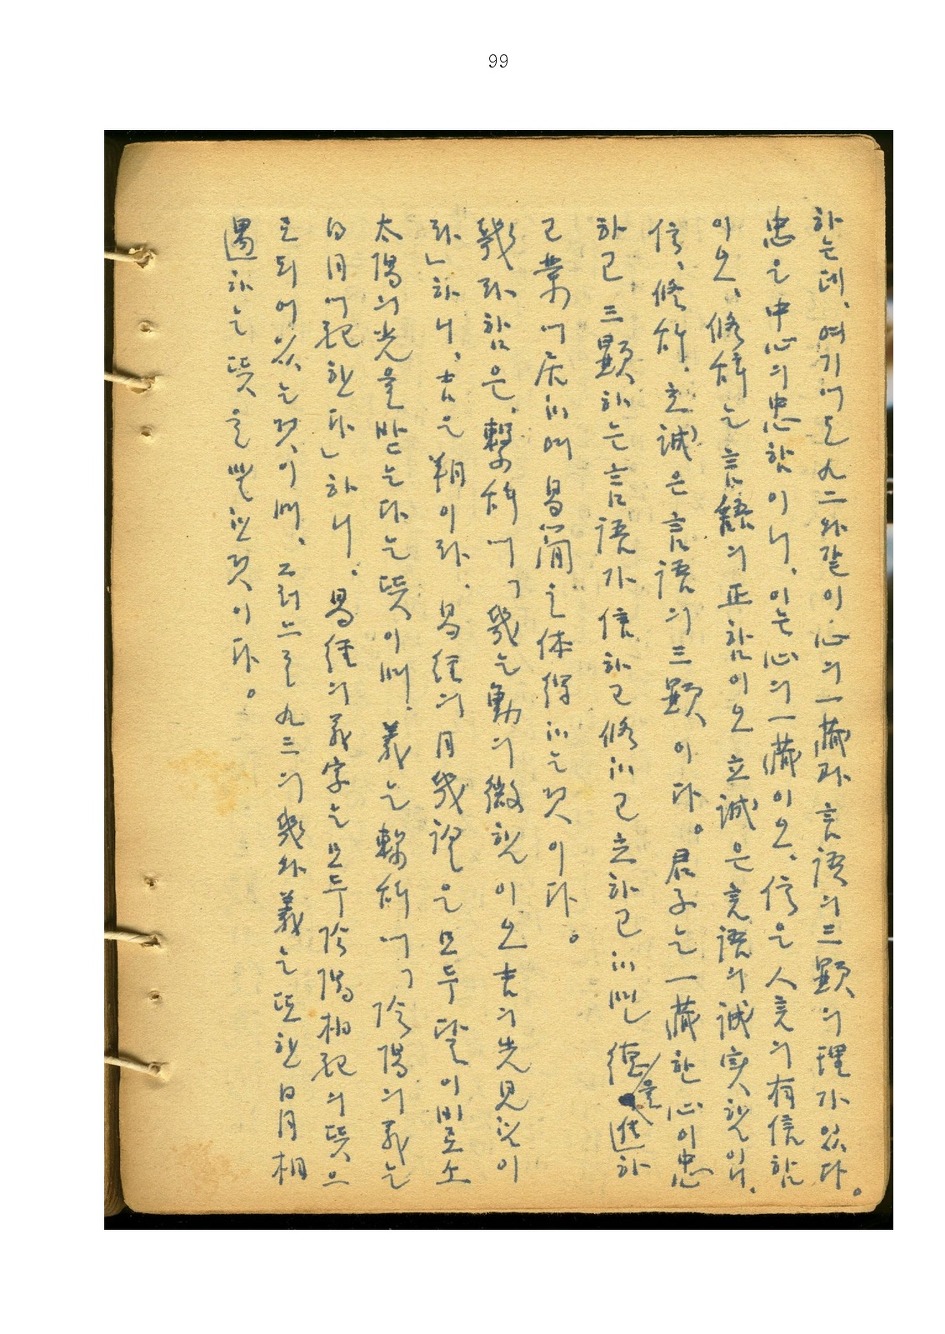 99
하는데, 여기에도 九二와같이 心의 一藏과 言語의 三顯의 理가 있다。
忠은 中心의 忠함이니, 이는 心의 一藏이오, 信은 人言의 有信함
이오, 修辭는 言語의 正함이오 立誠은 言語의 誠實함이니,
信, 修辭, 立誠은 言語의 三顯이다。君子는 一藏한 心이 忠
하고 三顯하는 言語가 信하고 修하고 立하고 하면 德을 進하
고 業에 居하며 易簡을 体得하는것이다。
幾라함은, 繫辭에「幾는 動의 微함이오 吉의 先見함이
라」하니, 吉은 朔이라. 易經의 月幾望은 모두 달이 비로소
太陽의 光을 받는다는 뜻이며, 義는 繫辭에「陰陽의 義는
日月에 配한다」하니, 易經의 義字는 모두 陰陽相配의 뜻으
로 되어있는것이며, 그러므로 九三의 幾와 義는 또한 日月相
遇하는 뜻을 말한것이다。